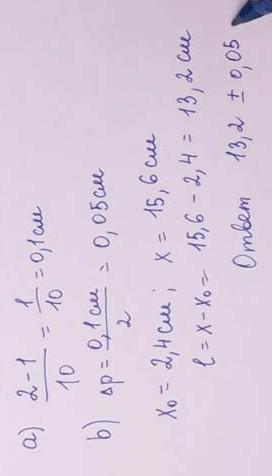 a) 2-1/10 = 1/10 = 0,1см
b) Δp = 0,1см/2 = 0,05см
x₀ = 2,4см; x = 15,6см
l = x - x₀ = 15,6 - 2,4 = 13,2см
Ответ 13,2 ± 0,05